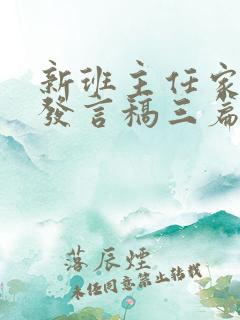 新班主任家
發言稿三篇
落辰煙
未任同意禁止转载